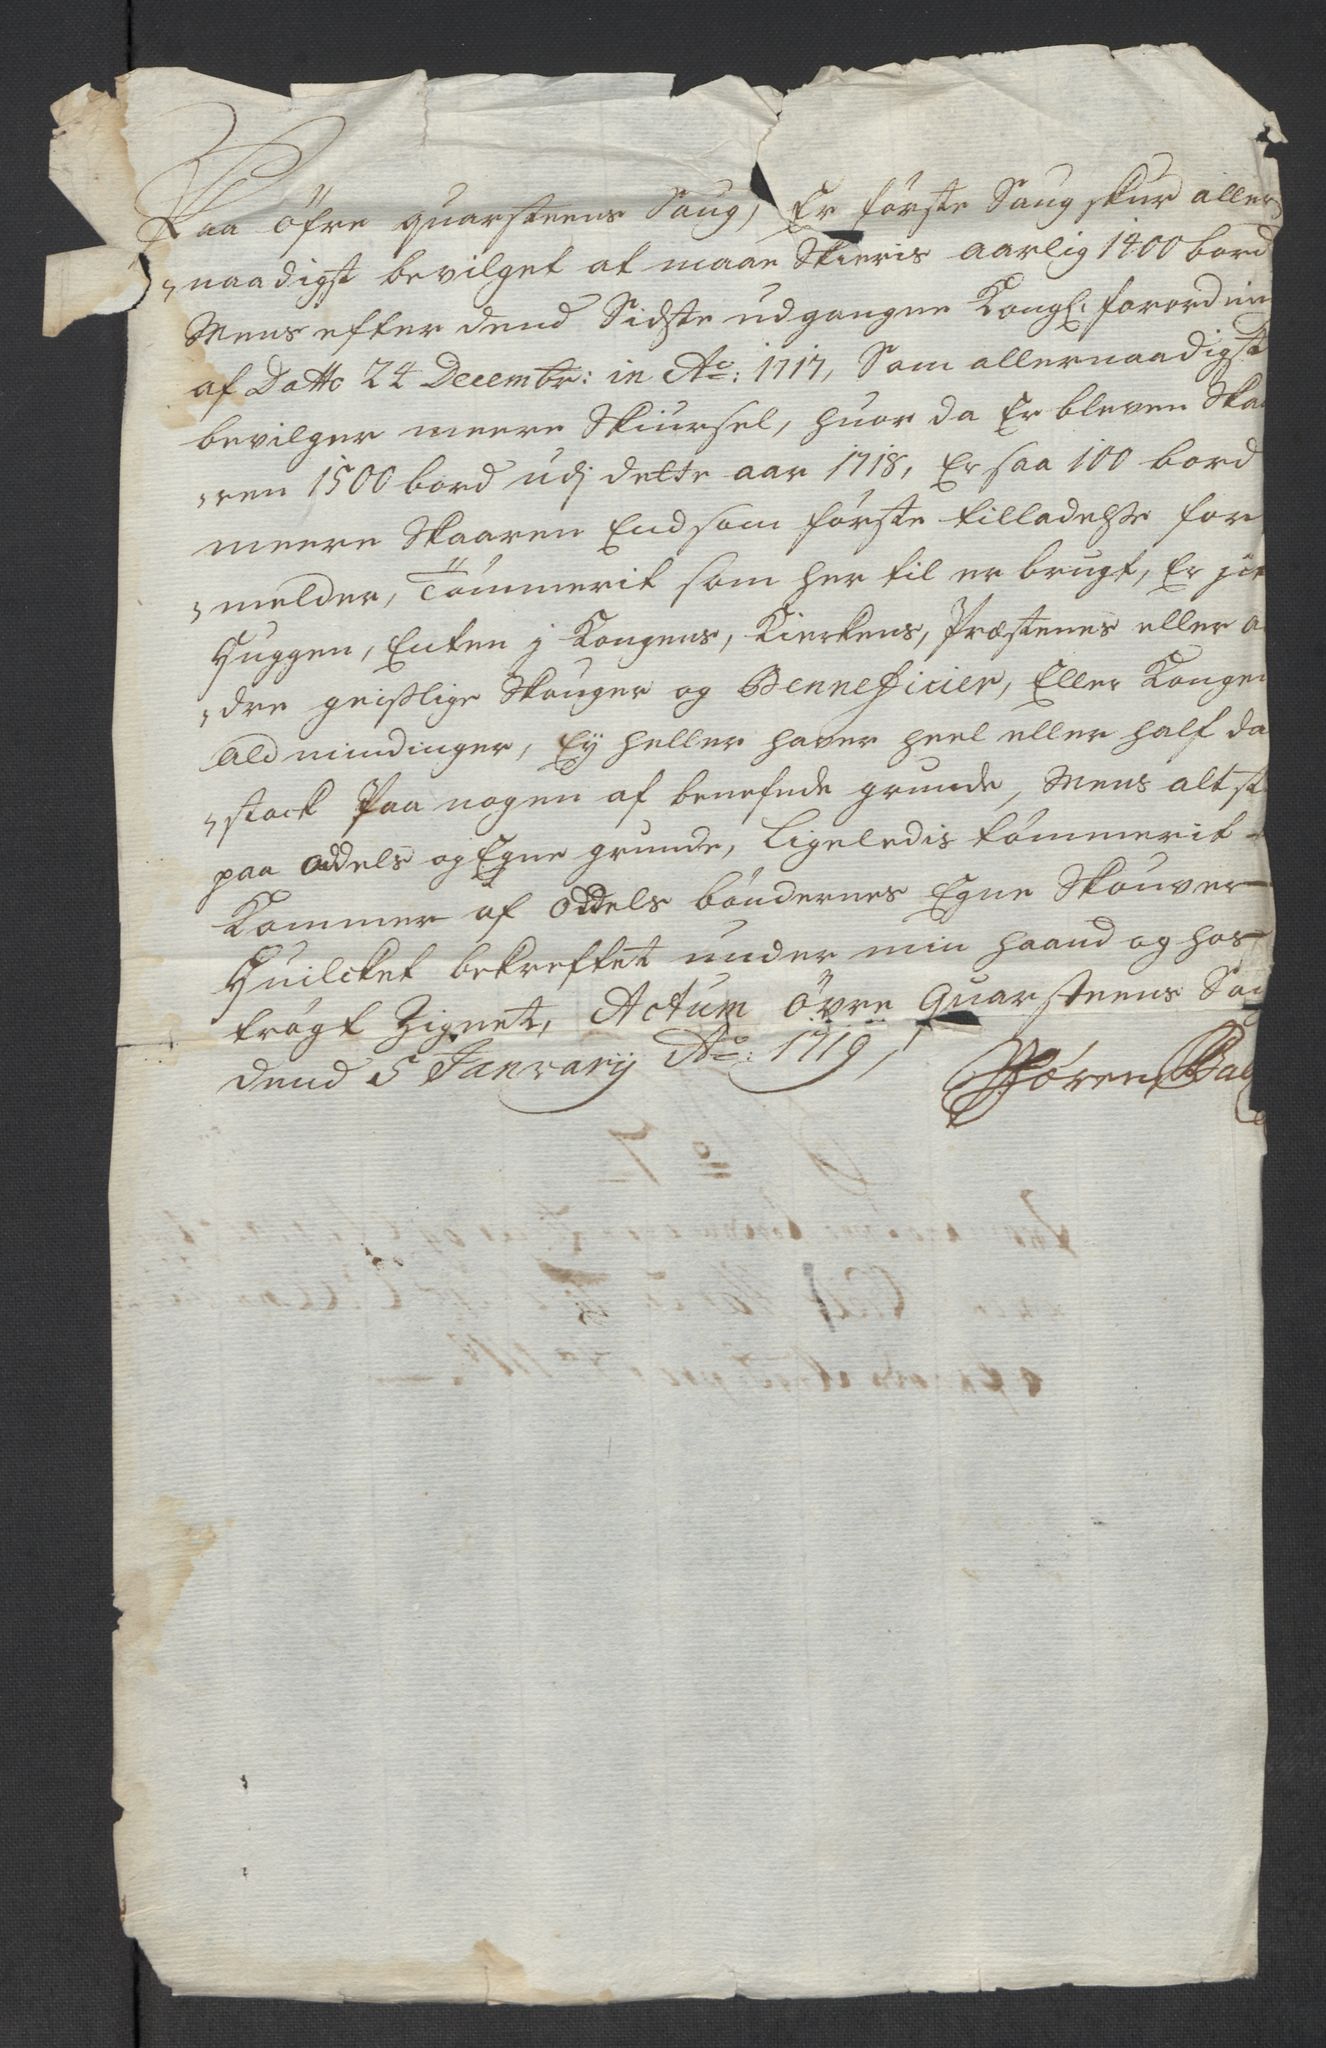 Paa öfre quarsteens Saug, Er förste Saug skur aller
naadigst bevilget at maae Skieris aarlig 1400 bord
Mens efter dend Sidste udgangne Kongl: forordni
af Datto 24 Decembr: in Ao: 1717, Som allernaadigst
bevilger meere Skiursel, huor da Er bleven Skaa
ren 1500 bord udj dette aar 1718, Er saa 100 bord
meere Skaaren End som förste tilladelsse for
melder, Tömmerit som her til er brugt, Er
Huggen, Enten j Kongens, Kierkens, Præstenes eller a
dre geistlige Skouger og Benneficier, Eller Konge
Ald mindinger, Eÿ heller haver heel eller half da
stock Paa nogen af benefnde grunde, Mens alt st
paa oddels og Egne grunde, Ligeledis tömmerit
Kommer af Oddels böndernes Egne Skouver
Huilcket bekreftet under min haand og hos
trögt Zignet, Actum Övre Quarsteens Sa
dend 5 Janvarij Ao: 1719,
Sören Bag
No 7